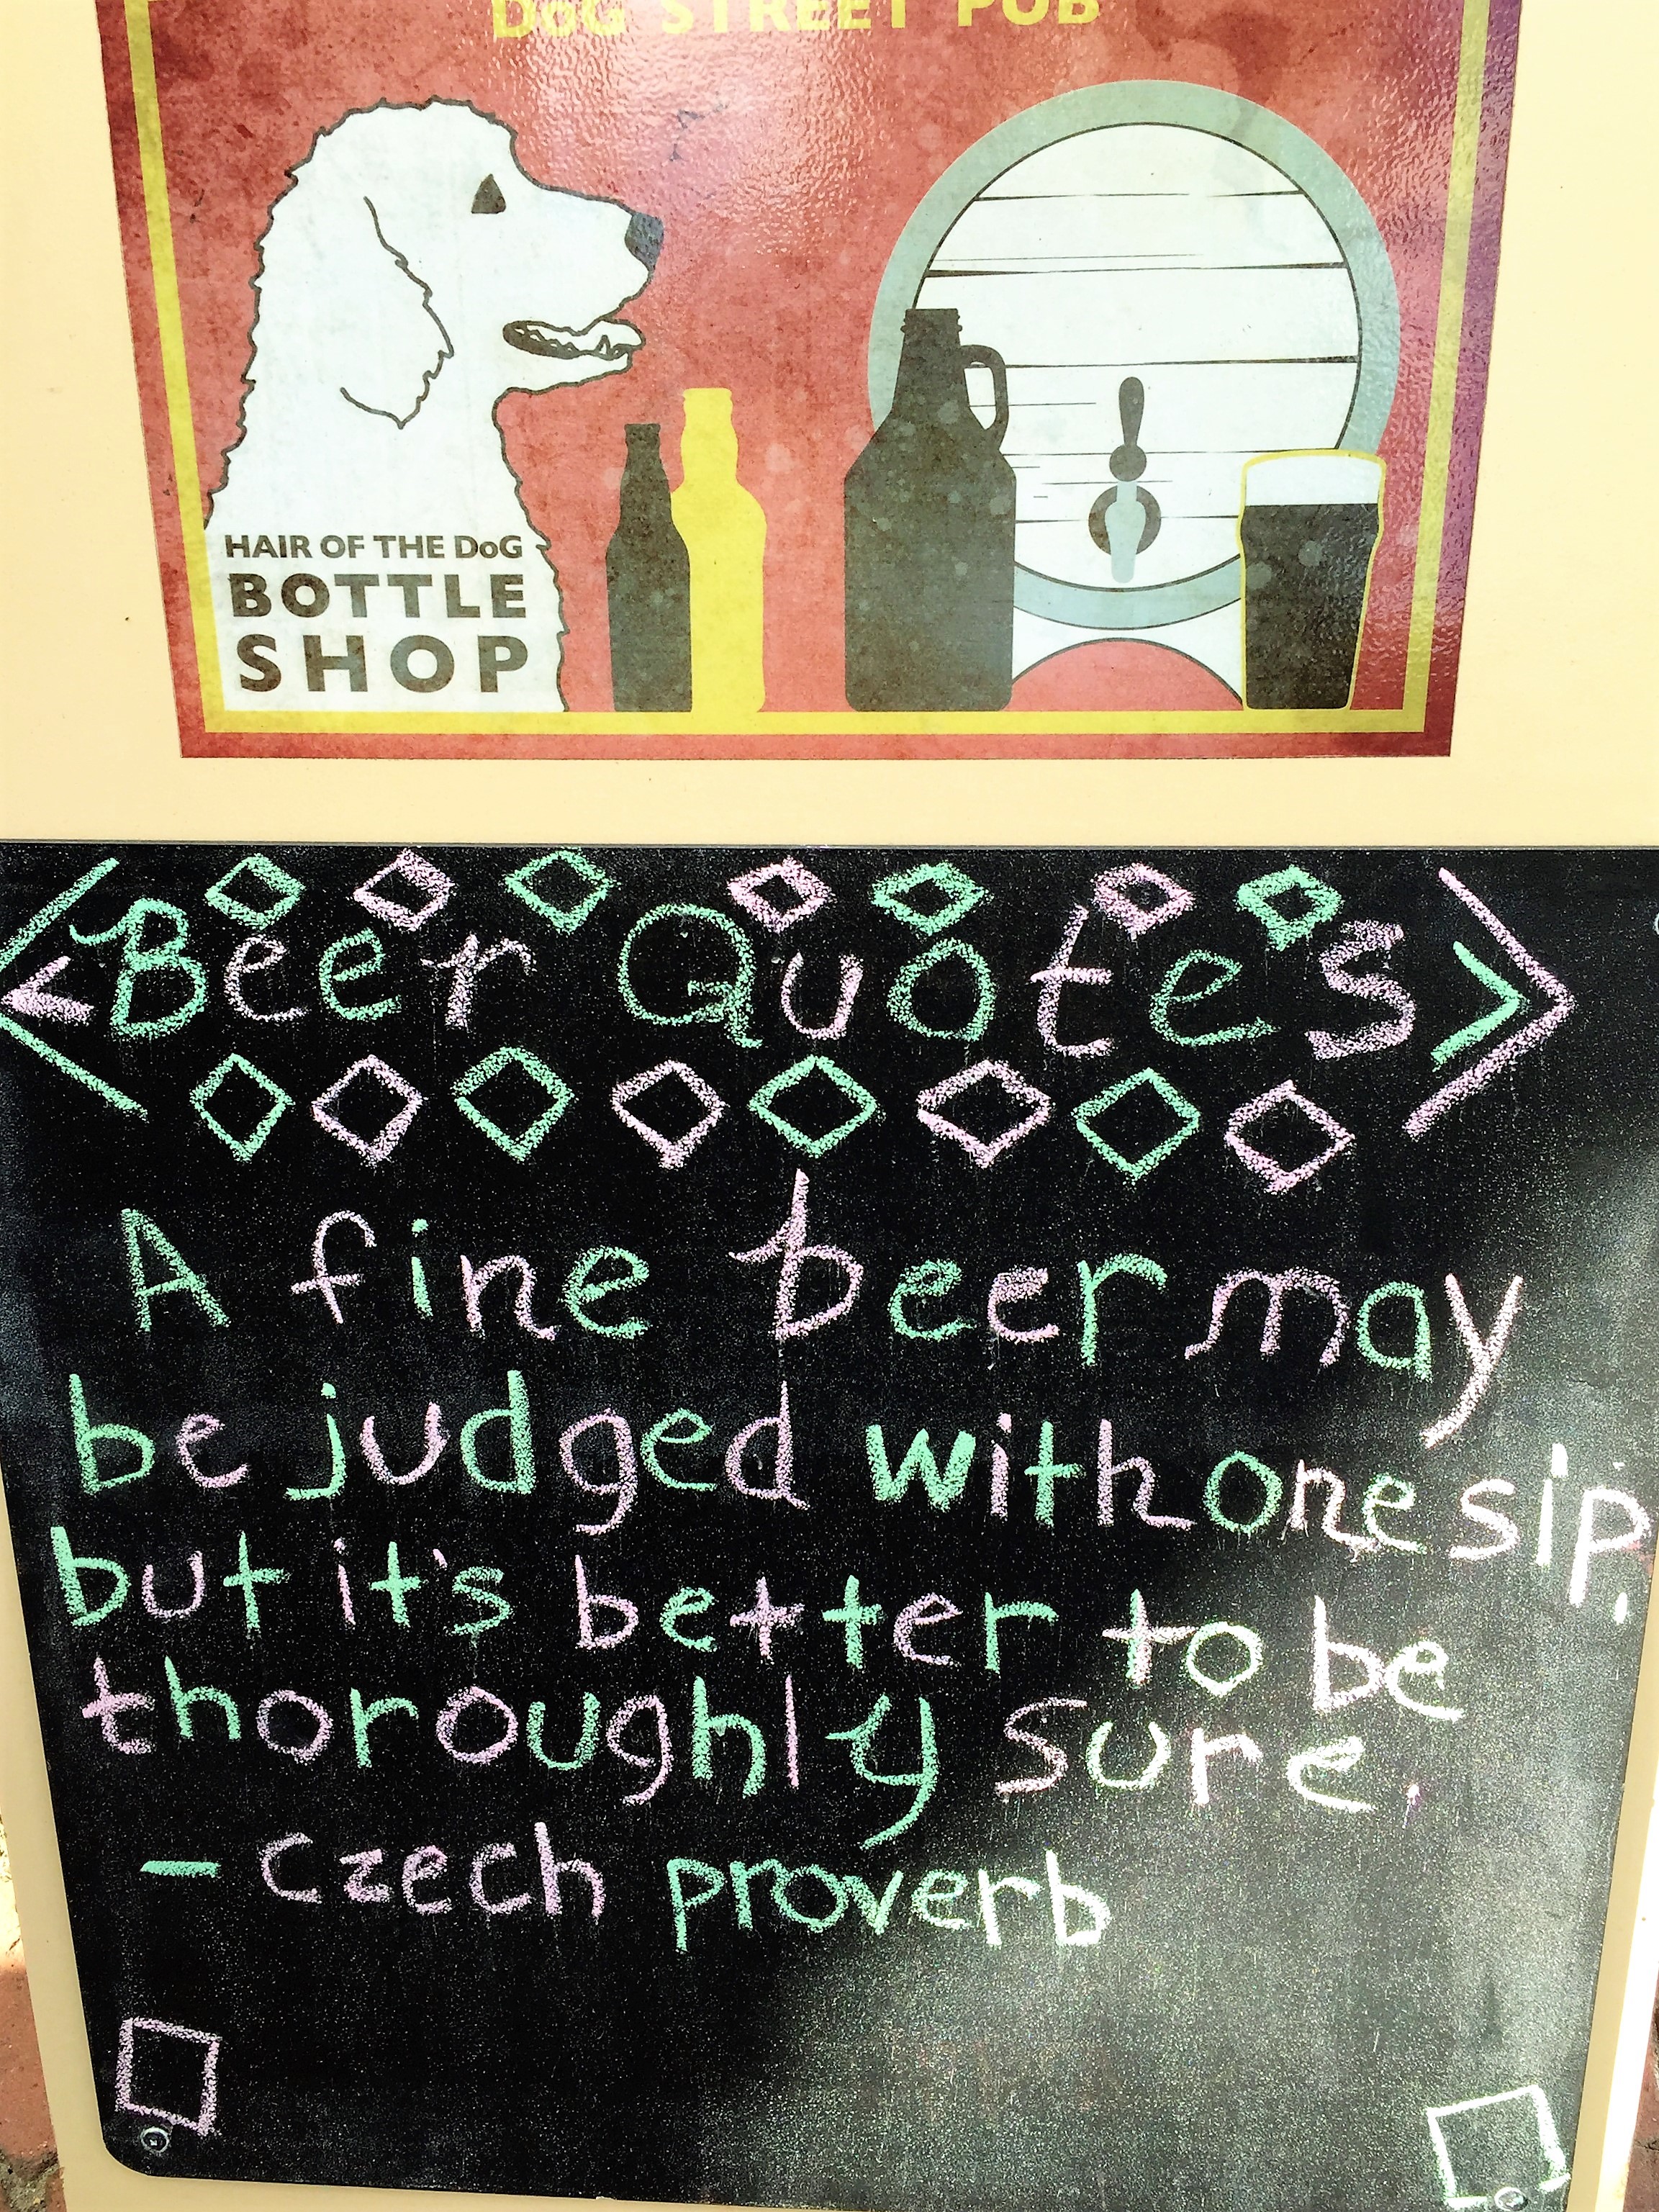 DoG STREET PUB
HAIR OF THE DoG
BOTTLE
SHOP
Beer Quotes
A fine beer may
be judged with one sip,
but it's better to be
thoroughly sure.
- Czech proverb